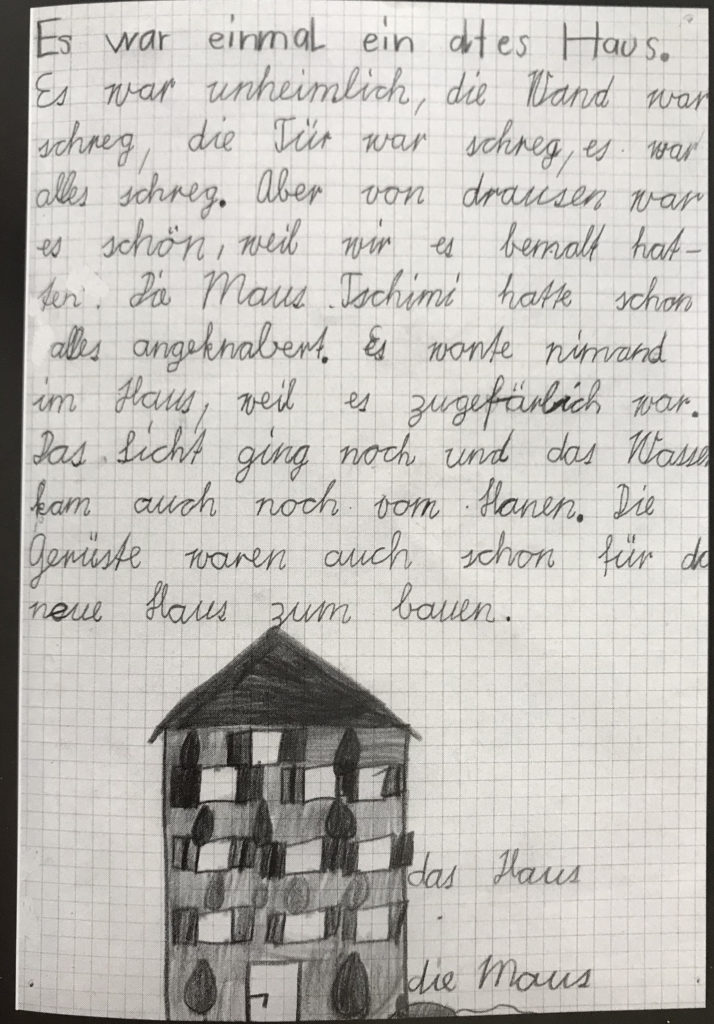 Es war einmal ein altes Haus.
Es war unheimlich, die Wand war
schreg, die Tür war schreg, es war
alles schreg. Aber von drausen war
es schön, weil wir es bemalt hat-
ten. Die Maus Tschimi hatte schon
alles angeknabert. Es wonte nimand
im Haus, weil es zugefärlich war.
Das Licht ging noch und das Wasser
kam auch noch vom Hanen. Die
Gerüste waren auch schon für
neue Haus zum bauen.
das Haus
die Maus